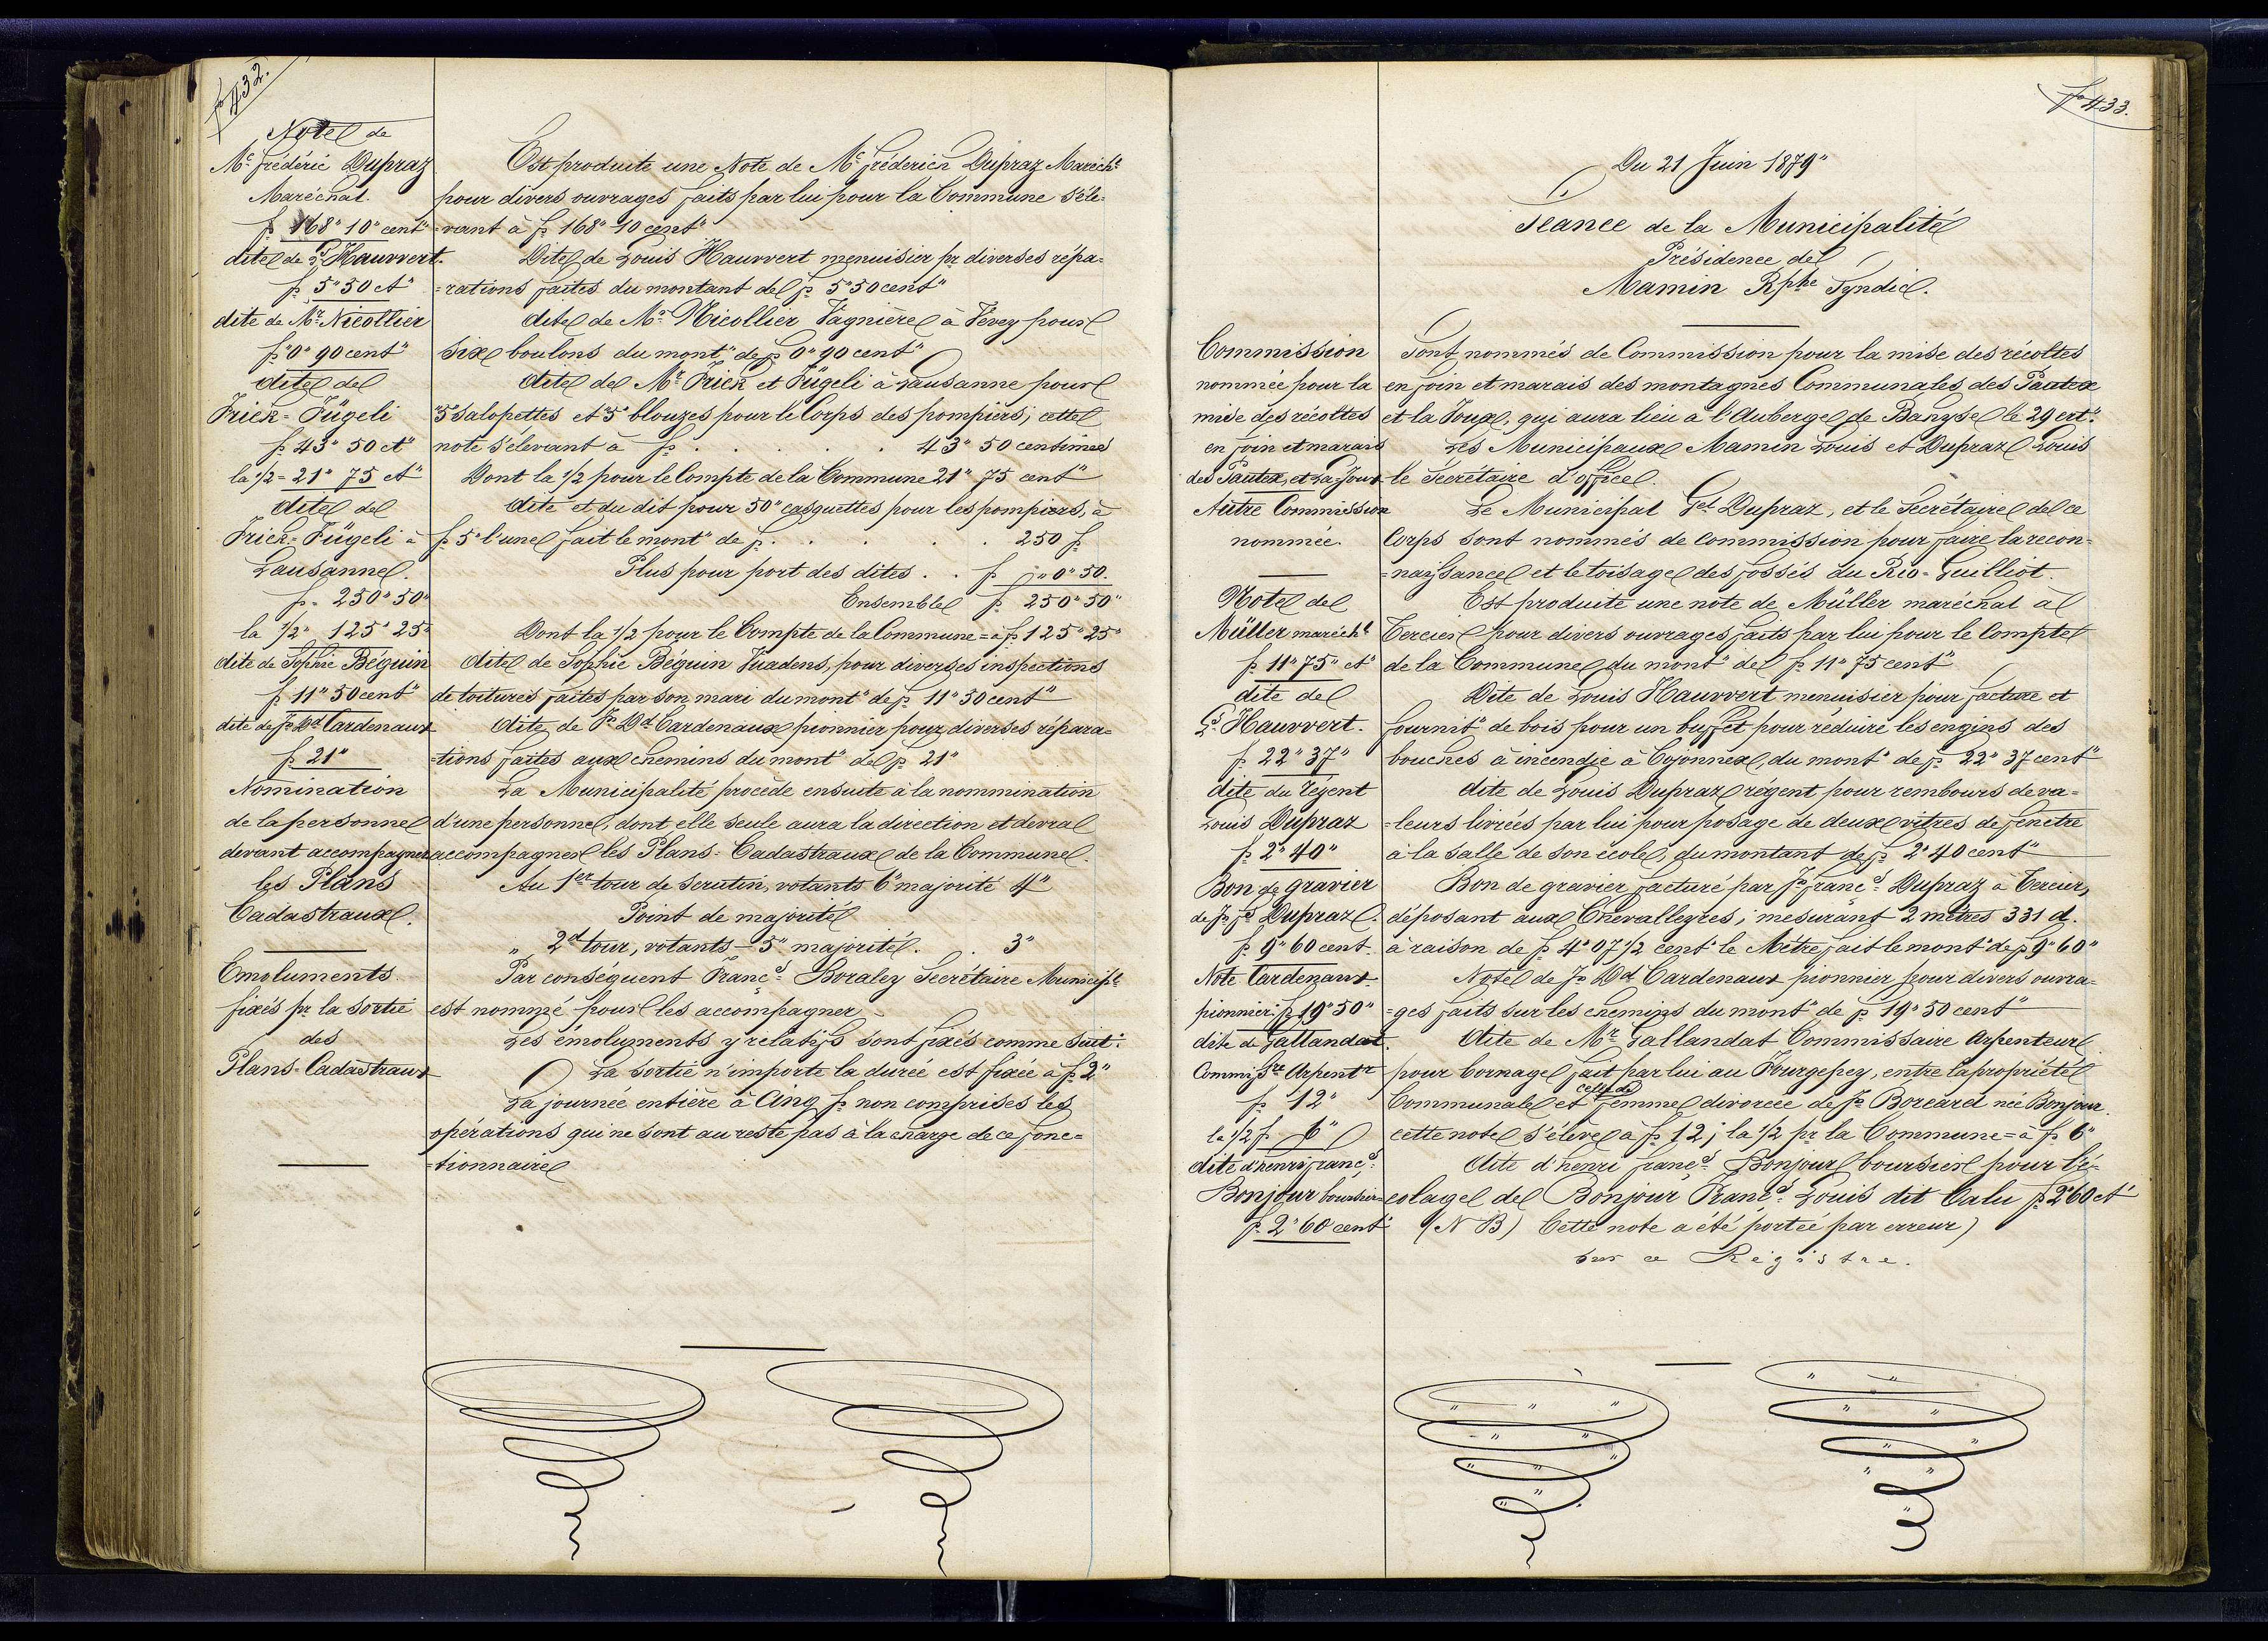 fº 432.
Note de
Mr. Frédéric Dupraz
Maréchal.
fr 168" 10" cent"
dite de Ls Hauvvert.
fr 5" 50 ct"
dite de Mr. Nicollier
fr "0" 90 cent"
dite de
Frick=Fügeli
fr 43" 50 ct"
la 1/2 = 21" 75 ct"
dite de
Frick=Fügeli à
Lausanne.
fr. 250" 50"
la 1/2" 125" 25"
dite de Sophie Béguin
fr 11" 50 cent"
dite de Jn Dd Cardenaux
fr 21"
Nomination
de la personne
devant accompagner
les Plans
Cadastraux.
Emoluments
fixés pr la sortie
des
Plans=Cadastraux
Est produite une Note de Mr Fréderich Dupraz Maréchl
pour divers ouvrages faits par lui pour la Commune s'éle=
=vant à fr 168" 10 cent"
Dite de Louis Hauvvert menuisier pr diverses répa=
=rations faites du montant de fr 5" 50 cent"
dite de Mr Nicollier Vagnière à Vevey pour
six boulons du mont" de fr 0" 90 cent"
dite de Mr Frick et Fügeli à Lausanne pour
"5" salopettes et "5" blouzes pour le Corps des pompiers; cette
note s'élevant à fr . . . . . 43" 50 centimes
Dont la 1/2 pour le Compte de la Commune 21" 75 cent"
dite et du dit pour 50" casquettes pour les pompiers, à
fr 5" l'une fait le mont" de fr . . . . . 250 fr
Plus pour port des dites . . fr " 0" 50.
Ensemble fr 250" 50"
Dont la 1/2 pour le Compte de la Commune = à fr 125" 25"
dite de Sophie Béguin Tuadens, pour diverses inspections
de toitures faites par son mari du mont" de fr 11" 50 cent"
dite de Jn Dd Cardenaux pionnier pour diverses répara=
=tions faites aux chemins du mont" de fr 21"
La Municipalité procède ensuite à la nommination
d'une personne, dont elle seule aura la direction et devra
accompagner les Plans=Cadastraux de la Commune.
Au 1er tour de scrutin, votants 6" majorité 4"
Point de majorité
" 2d tour, votants = 5" majorité . . 3"
Par conséquent Francs Boraley Secrétaire Municipl
est nommé pour les accompagner.
Les émoluments y relatifs sont fixés comme suit:
La sortie n'importe la durée est fixée à fr 2"
La journée entière à Cinq fr non comprises les
opérations qui ne sont au reste pas à la charge de ce fonc=
=tionnaire
fº 433.
Du 21 Juin 1879"
Séance de la Municipalité
Présidence de
Mamin Rphe Syndic.
Commission
nommée pour la
mise des récoltes
en foin et marais
des Pautex, et La Joux
Autre Commission
nommée.
Note de
Müller maréchl
fr 11" 75" ct"
dite de
Ls Hauvvert.
fr 22" 37"
dite du régent
Louis Dupraz
fr 2" 40"
Bon de gravier
de Jn fs Dupraz.
fr 9" 60 cent.
Note Cardenaux
pionnier fr 19" 50"
dite de Gallandat.
Commissre Arpentr
fr 12"
la 1/2 fr 6"
dite d'henri francs
Bonjour boursier
fr 2" 60 cent
Sont nommés de Commission pour la mise des récoltes
en foin et marais des montagnes Communales des Pautex
et la Joux, qui aura lieu à l'Auberge de Bahyse le 29 crt"
Les Municipaux Mamin Louis et Dupraz Louis
le Secrétaire d'office.
Le Municipal Gel Dupraz, et le Secrétaire de ce
Corps sont nommés de Commission pour faire la recon=
=naissance et le toisage des fossés du Rio=Guilliot.
Est produite une note de Müller maréchal à
Tercier pour divers ouvrages faits par lui pour le Compte
de la Commune du mont" de fr 11" 75 cent"
Dite de Louis Hauvvert menuisier pour facture et
fournit" de bois pour un buffet pour réduire les engins des
bouches à incendie à Cojonnex, du mont" de fr 22" 37 cent"
dite de Louis Dupraz régent pour rembours de va=
=leurs livrées par lui pour posage de deux vitres de fenêtre
à la salle de son école, du montant de fr 2" 40 cent"
Bon de gravier facturé par Jn francs Dupraz à Tercier,
déposant aux Chevalleyres; mesurant 2 mètres 331 d.
à raison de fr 4" 07 1/2 cent" le Mètre fait le mont" de fr 9" 60"
Note de Jn Dd Cardenaux pionnier pour divers ouvra=
=ges faits sur les chemins du mont" de fr 19" 50 cent"
dite de Mr Gallandat Commissaire Arpenteur
pour bornage fait par lui au Fourgepey, entre la propriété
celle de
Communale et femme divorcée de Jn Borcard née Bonjour.
cette note s'élève à fr 12; la 1/2 pr la Commune = à fr 6"
dite d'henri francs Bonjour boursier pour l'é=
=colage de Bonjour Francs Louis dit Calu fr 2" 60 ct
(N B) Cette note a été portée par erreur)
sur ce Régistre.